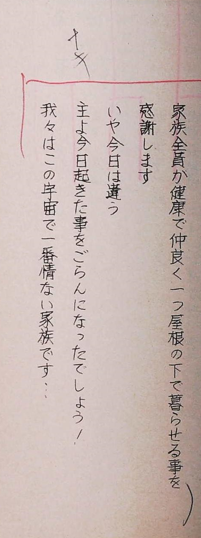 家族全員が健康で仲良く一つ屋根の下で暮らせる事を
感謝します
いや今日は違う
主よ今日起きた事をごらんになったでしょう!
我々はこの宇宙で一番情ない家族です…